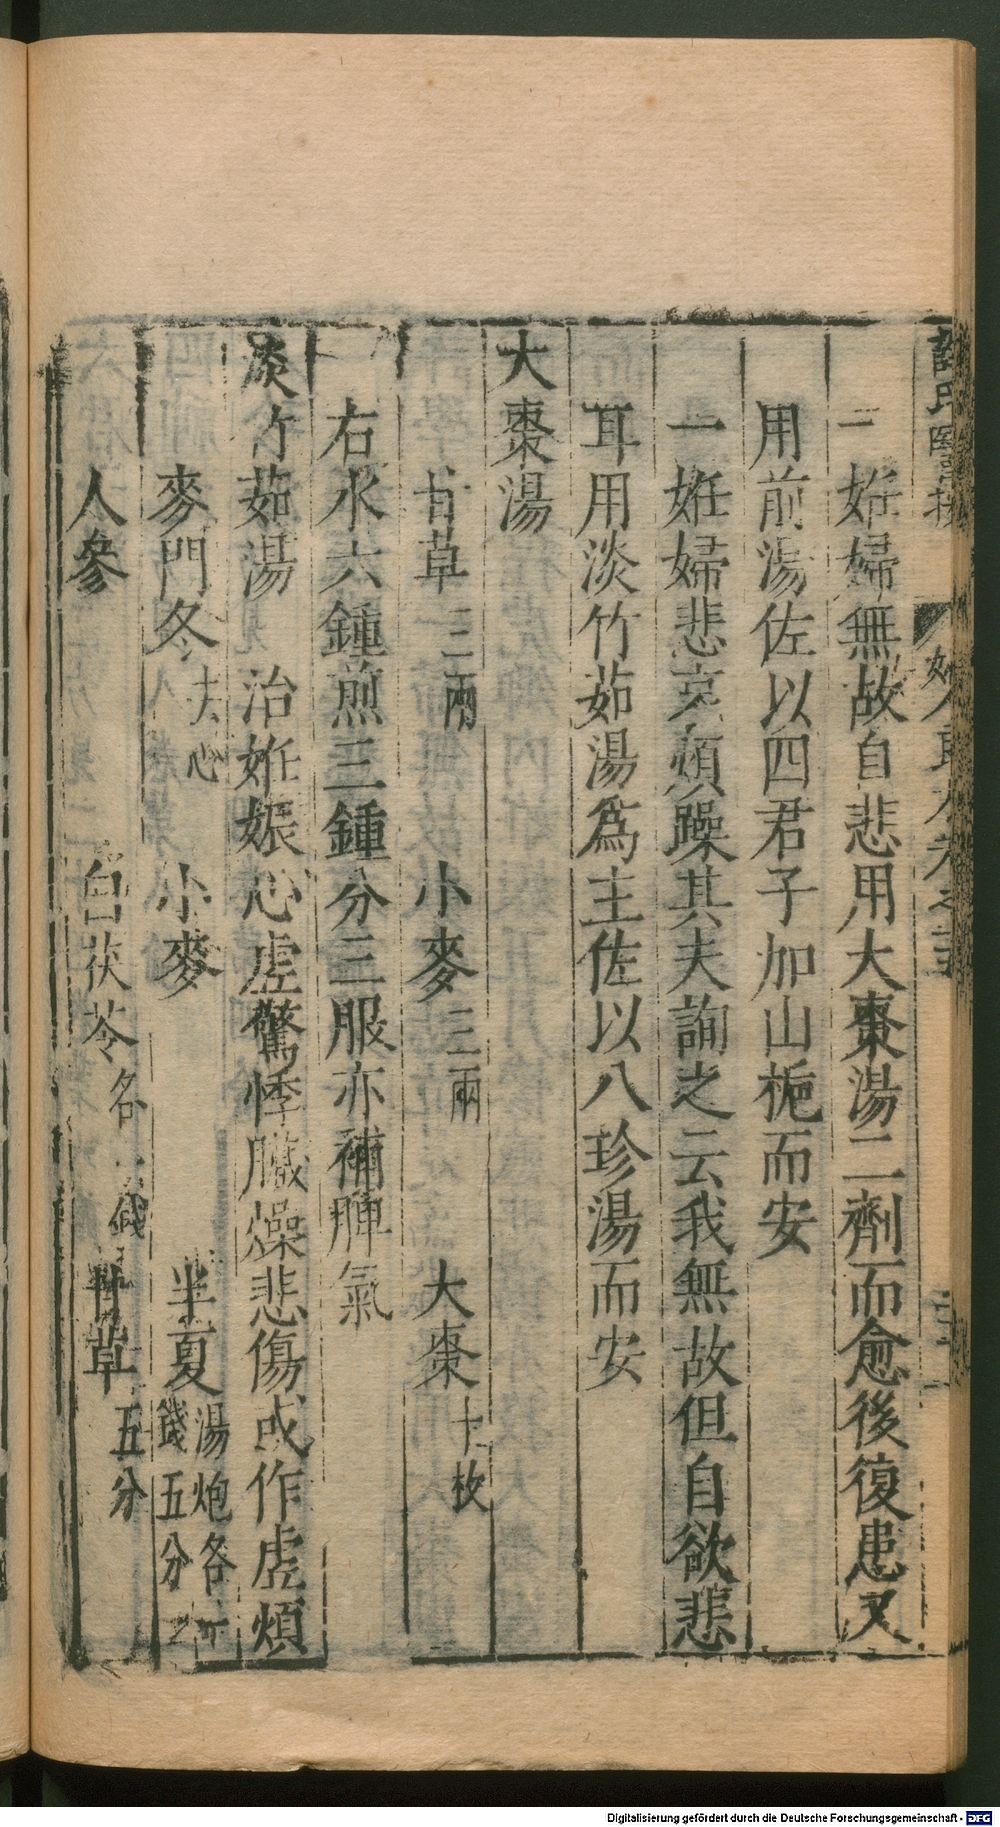 一姙婦無故自悲用大棗湯二劑而愈後復患又
用前湯佐以四君子加山梔而安
一姙婦悲哀煩躁其夫詢之云我無故但自欲悲
耳用淡竹茹湯爲主佐以八珍湯而安
大棗湯
甘草三兩 小麥三兩 大棗十枚
右水六鍾煎三鍾分三服亦補脾氣
淡竹茹湯 治姙娠心虛驚悸臟燥悲傷或作虛煩
麥門冬去心 小麥 半夏湯炮各一錢五分
人參 白茯苓各一錢 甘草五分
Digitalisierung gefördert durch die Deutsche Forschungsgemeinschaft - DFG